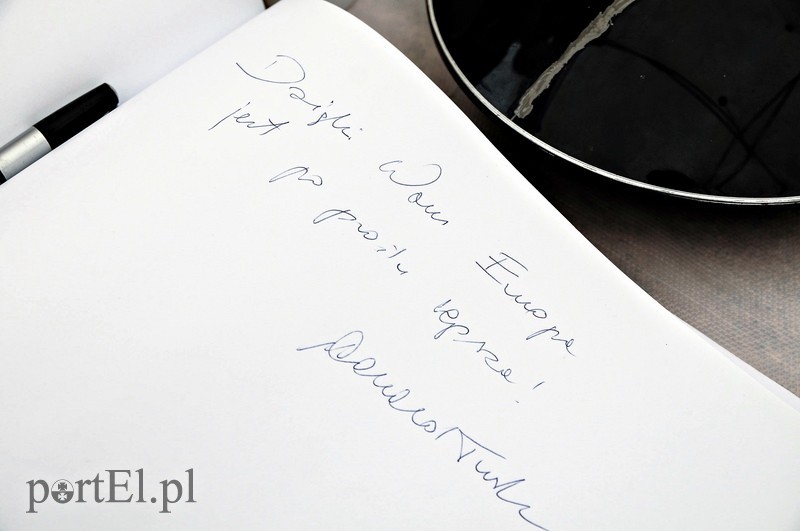 Dzięki Wam Europa
jest po prostu lepsza!
Donald Tusk
portEl.pl